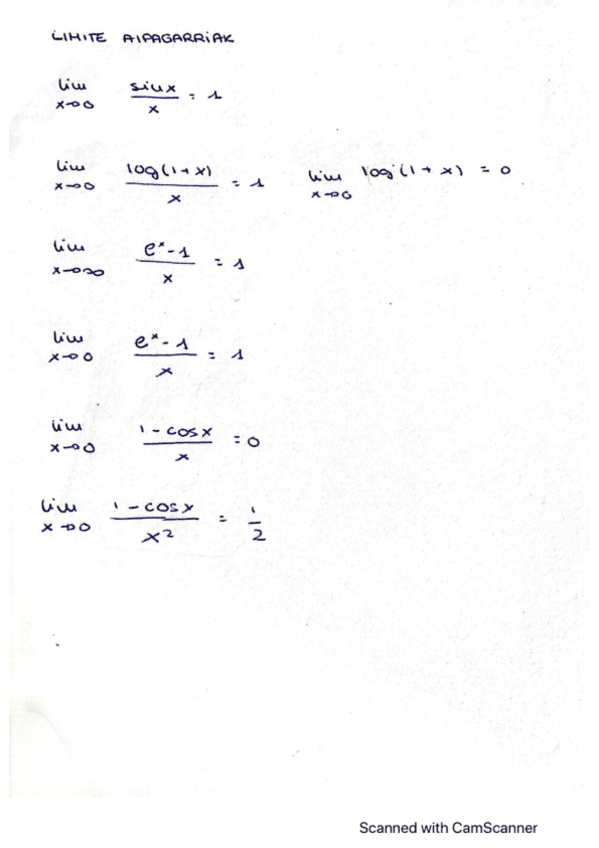 LIMITE AIPAGARRIAK
lim x→0 sinx/x = 1
lim x→0 log(1+x)/x = 1 lim x→0 log(1+x) = 0
lim x→∞ eˣ-1/x = 1
lim x→0 eˣ-1/x = 1
lim x→0 1-cosx/x = 0
lim x→0 1-cosx/x² = 1/2
Scanned with CamScanner